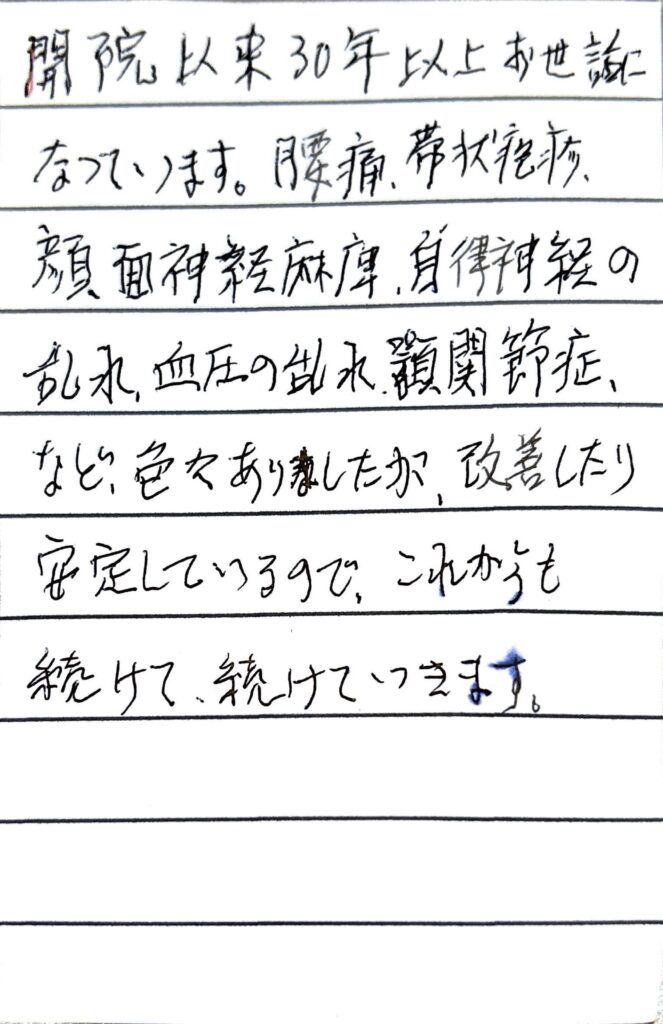 開院以来30年以上お世話に
なっています。腰痛、帯状疱疹、
顔面神経麻痺、自律神経の
乱れ、血圧の乱れ、顎関節症、
など、色々ありましたが、改善したり
安定しているので、これからも
続けて、続けていきます。